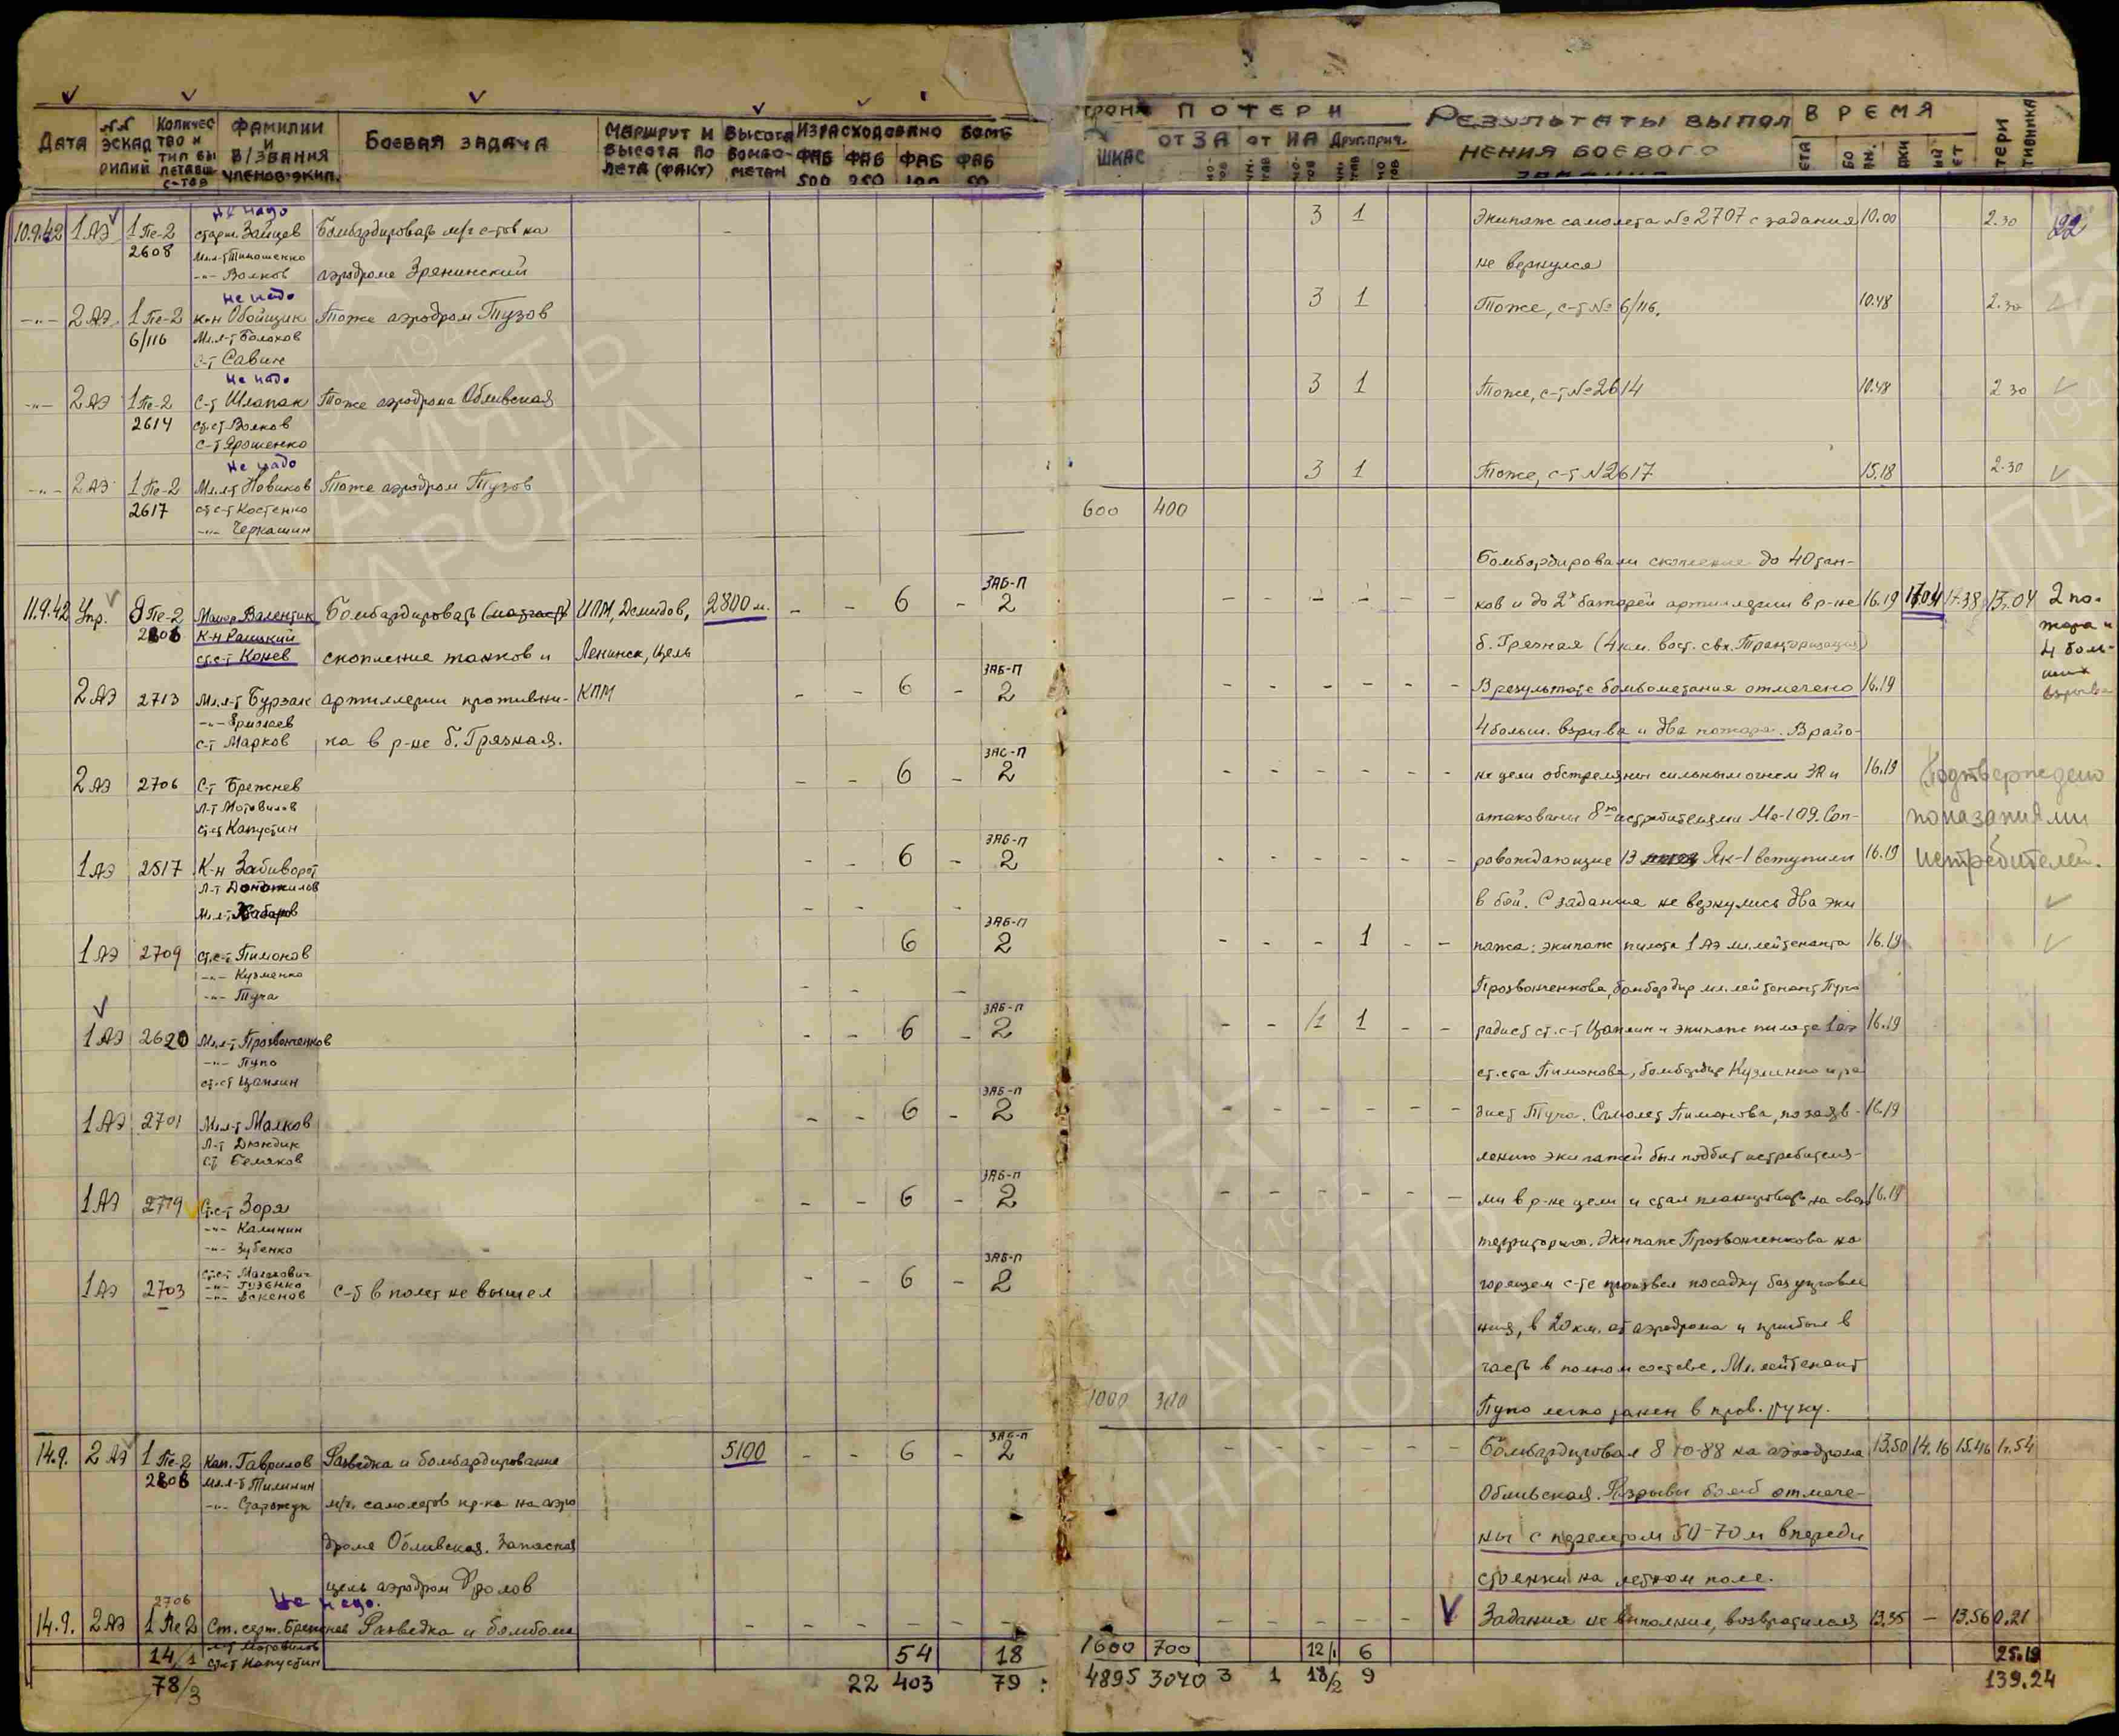 ДАТА
№№ ЭСКАДРИЛИЙ
КОЛИЧЕСТВО И ТИП ВЫЛЕТАВШ. С-ТОВ
ФАМИЛИИ И В/ЗВАНИЯ ЧЛЕНОВ ЭКИП.
БОЕВАЯ ЗАДАЧА
МАРШРУТ И ВЫСОТА ПОЛЕТА (ФАКТ)
ВЫСОТА БОМБОМЕТАН
ИЗРАСХОДОВАНО БОМБ
ФАБ 500 ФАБ 250 ФАБ 100 ФАБ 50
ШКАС
ПОТЕРИ
ОТ ЗА ОТ ИА ДРУГ.ПРИЧ.
РЕЗУЛЬТАТЫ ВЫПОЛНЕНИЯ БОЕВОГО
ВРЕМЯ
не надо
10.9.42 1 АЭ 1 Пе-2 старш. Зайцев Бомбардировать м/ч с-тов на
2608 Мл.л-т Тимошенко
-"- Волков аэродроме Зрянинский
не надо
-"- 2 АЭ 1 Пе-2 к-н Обойщик Тоже аэродром Тузов
6/116 Мл.л-т Болохов
с-т Савин
не надо
-"- 2 АЭ 1 Пе-2 С-т Шлапак Тоже аэродрома Обливская
2614 ст.с-т Волков
с-т Ярошенко
не надо
-"- 2 АЭ 1 Пе-2 Мл.л-т Новиков Тоже аэродром Тузов
2617 ст.с-т Костенко
-"- Черкашин
11.9.42 Упр. 9 Пе-2 Майор Валентик Бомбардировать ИПМ, Демидов, 2800 м. - - 6 - ЗАБ-П 2
к-н Рацкий
ст.с-т Конев скопление танков и Ленинск, Цель
2 АЭ 2713 Мл.л-т Бурзак артиллерии противни- КПМ - - 6 - ЗАБ-П 2
-"- Ермолаев
с-т Марков ка в р-не б. Грязная.
2 АЭ 2706 С-т Брежнев - - 6 - ЗАБ-П 2
л-т Мотовилов
ст.с-т Капустин
1 АЭ 2517 К-н Забиворот - - 6 - ЗАБ-П 2
1 АЭ 2709 ст.с-т Пимонов 6 ЗАБ-П 2
-"- Кузменко
-"- Туча
1 АЭ 2620 Мл.л-т Прозванченков - - 6 - ЗАБ-П 2
-"- Пупо
ст.с-т Цаплин
1 АЭ 2701 Мл.л-т Малков - - 6 - ЗАБ-П 2
л-т Дюндик
с-т Беляков
1 АЭ 2719 ст.с-т Зоря - - 6 - ЗАБ-П 2
-"- Калинин
-"- Зубенко
1 АЭ 2703 ст.с-т Магалович с-т в полет не вышел - - 6 - ЗАБ-П 2
14.9. 2 АЭ 1 Пе-2 Кап. Гаврилов Разведка и бомбардирование 5100 - - 6 - ЗАБ-П 2
Мл.л-т Тилинин
м/ч. самолетов пр-ка на аэро
дроме Обливская. Запасная
цель аэродром Фролов
2706 Не надо.
14.9. 2 АЭ 1 Пе-2 Ст. серж. Брежнев Разведка и бомбоме
14/1 л-т Мотовилов 54 18
ст.с-т Капустин
78/3 22 403 79
3 1 Экипаж самолета № 2707 с задания 10.00 2.30 22
не вернулся
3 1 Тоже, с-т № 6/116. 10.48 2.30
3 1 Тоже, с-т № 2614 10.48 2 30
3 1 Тоже, с-т №2617 15.18 2.30
600 400
Бомбардировали скопление до 40 тан-
ков и до 2х батарей артиллерии в р-не 16.19 17.04 17.38 13.04 2 по-
жара и
б. Грязная (4 км. вост. свх. Тракторизация) 4 боль-
ших
взрыва
В результате бомбометания отмечено 16.19
4 больш. взрыва и два пожара. В райо-
не цели обстреляны сильным огнем ЗА и 16.19 Подтверждено
атакованы 8ю истребителями Ме-109. Соп- показаниями
ровождающие 13 Як-1 вступили 16.19 истребителей.
в бой. С задания не вернулись два эки
1 пажа: экипаж пилота 1 АЭ мл.лейтенанта 16.19
Прозванченкова, бомбардир мл. лейтенант Пупо
/1 1 радист ст. с-т Цаплин и экипаж пилота 1 аэ 16.19
ст. с-та Пимонова, бомбардир Кузменко и ра
дист Туча. Самолет Пимонова, по заяв- 16.19
лению экипажей был подбит истребителя-
ми в р-не цели и стал планировать на свою 16.19
территорию. Экипаж Прозванченкова на
горящем с-те произвел посадку без управле
ния, в 20 км. от аэродрома и прибыл в
часть в полном составе. Мл. лейтенант
1000 300
Пупо легко ранен в прав. руку.
Бомбардировал 8 Ю-88 на аэродроме 13.50 14.16 15.46 1.54
Обливская. Разрывы бомб отмече-
ны с перелетом 50-70 м впереди
стоянки на летном поле.
Задания не выполнил, возвратился 13.35 - 13.56 0.21
1600 700 12/1 6 25.19
4895 3040 3 1 18/2 9 139.24